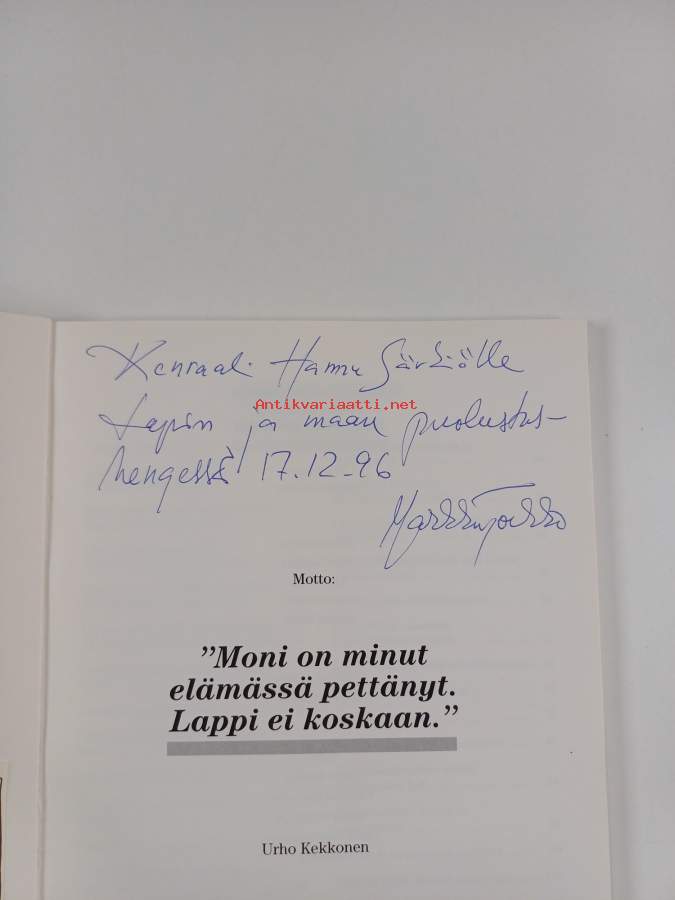 Kenraali Hannu Särkiölle
Antikvariaatti.net
Lapin ja maan puolustus-
hengessä! 17.12.-96
Markku Joikko
Motto:
"Moni on minut
elämässä pettänyt.
Lappi ei koskaan."
Urho Kekkonen